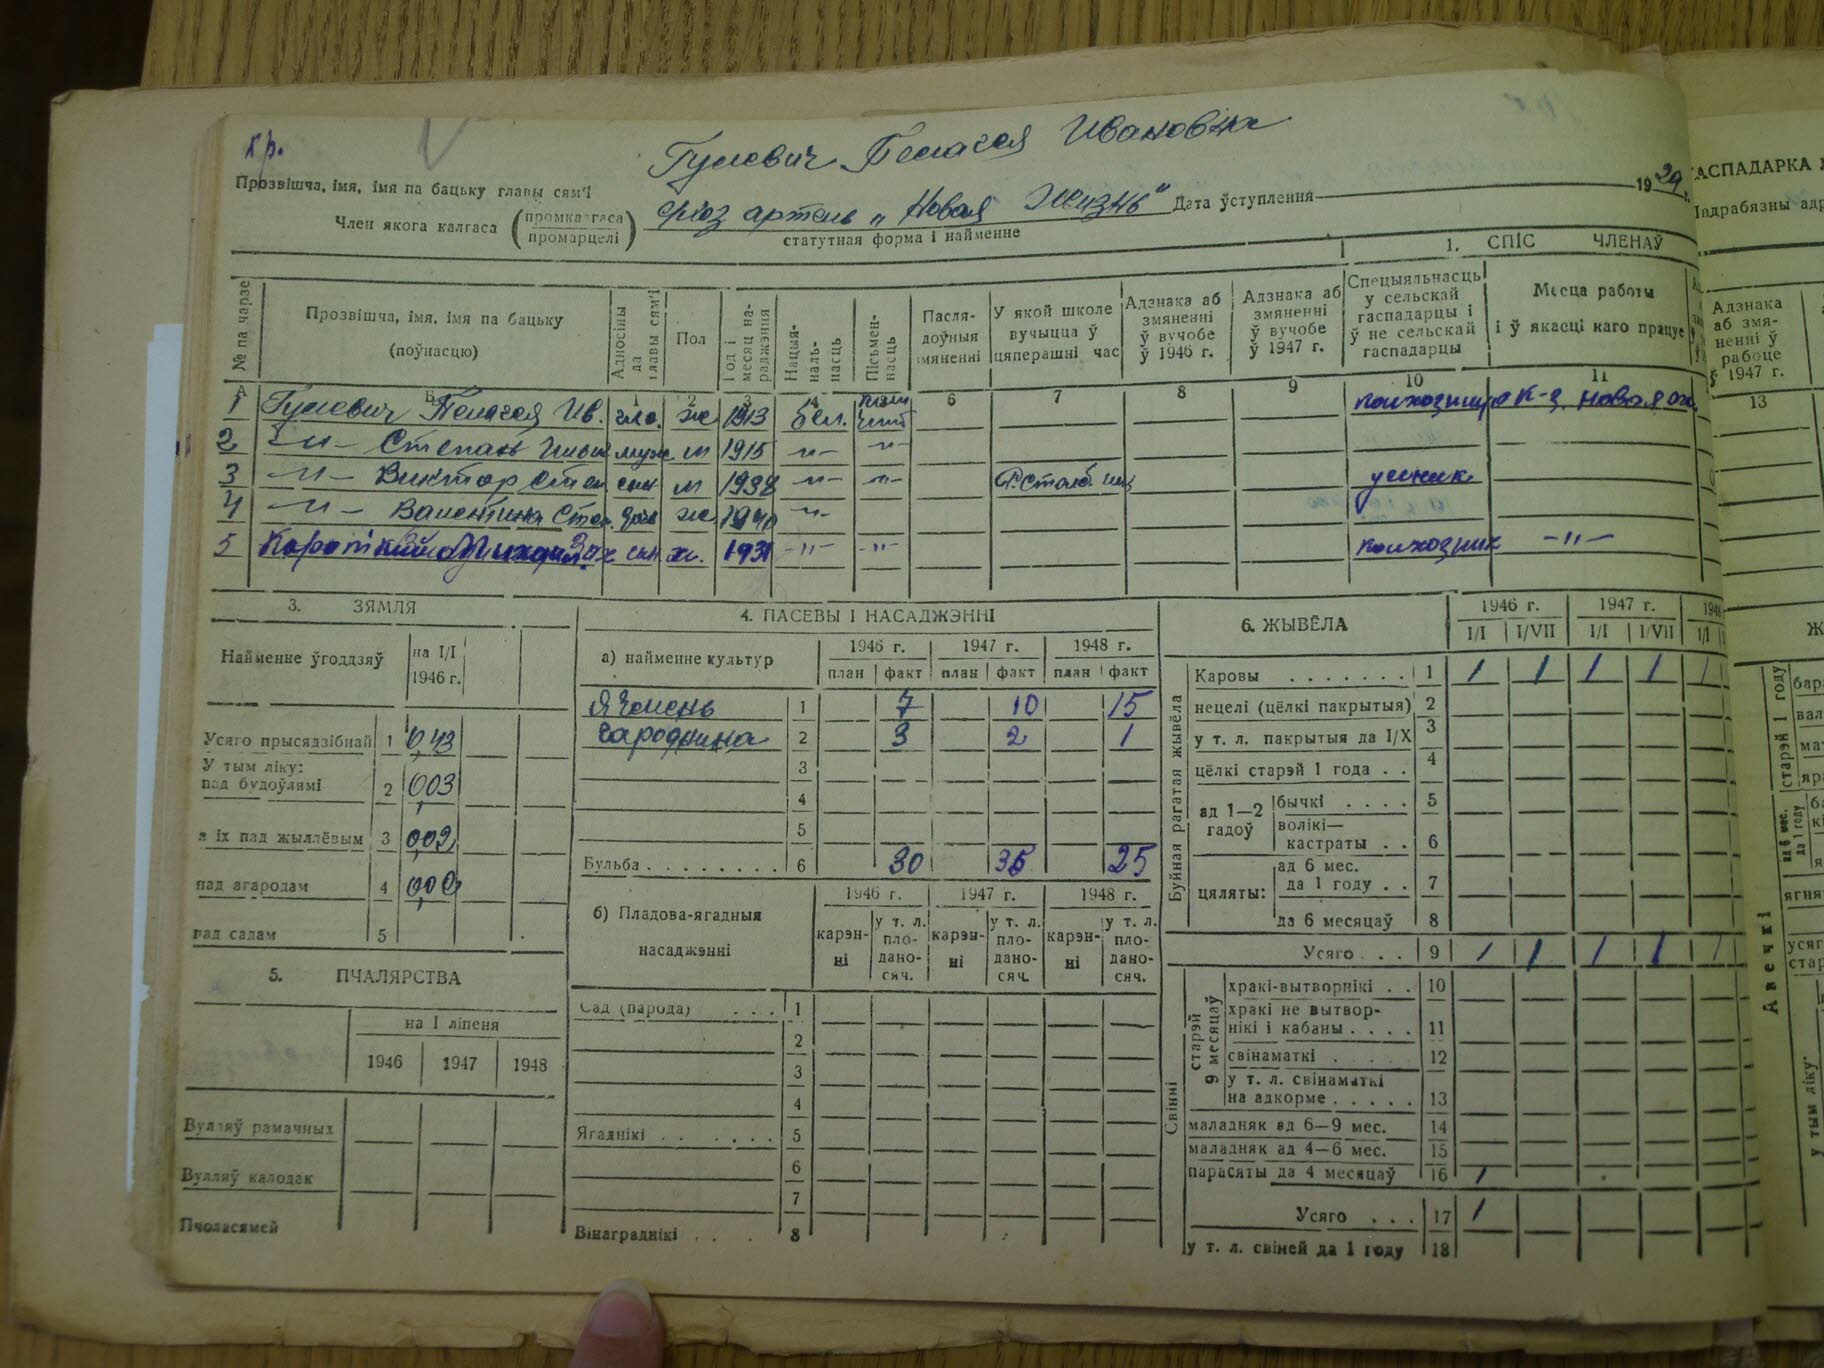 кр.
Гулевич Пелагея Ивановна
Прозвішча, імя, імя па бацьку главы сям'і
Член якога калгаса (промкалгаса / промарцелі) с/хоз артель „Новая Жизнь" Дата ўступлення 1939 г.
статутная форма і найменне
1. СПІС ЧЛЕНАЎ
№ па чарзе | Прозвішча, імя, імя па бацьку (поўнасцю) | Адносіны да главы сям'і | Пол | Год і месяц нараджэння | Нацыянальнасць | Пісьменнасць | Пасля- доўныя змяненні | У якой школе вучыцца ў цяперашні час | Адзнака аб змяненні ў вучобе ў 1946 г. | Адзнака аб змяненні ў вучобе ў 1947 г. | Спецыяльнасць у сельскай гаспадарцы і ў не сельскай гаспадарцы | Месца работы і ў якасці каго працуе
А Б 1 2 3 4 5 6 7 8 9 10 11
1 Гулевич Пелагея Ив. гла. ж 1913 бел. колхозница к-з. новая ж.
2 -"- Степан муж м 1915 -"- -"-
3 -"- Виктор Степ сын м 1938 -"- -"- ученик
4 -"- Валентина Степ. дочь ж 1940 -"-
5 сын 1931 -"- -"- колхозник -"-
3. ЗЯМЛЯ
Найменне ўгоддзяў | на I/I 1946 г.
Усяго прысядзібнай 1 0,43
У тым ліку:
пад будоўлямі 2 0,03
з іх пад жыллёвым 3 0,02
пад агародам 4
пад садам 5
5. ПЧАЛЯРСТВА
на I ліпеня
1946 1947 1948
Вулляў рамачных
Вулляў калодак
Пчоласямей
4. ПАСЕВЫ І НАСАДЖЭННІ
а) найменне культур | 1946 г. | 1947 г. | 1948 г.
план факт план факт план факт
Ячмень 1 7 10 15
гародніна 2 3 2 1
3
4
5
Бульба 6 30 35 25
б) Пладова-ягадныя насаджэнні | 1946 г. | 1947 г. | 1948 г.
карэнні | у т. л. пладаносяч. | карэнні | у т. л. пладаносяч. | карэнні | у т. л. пладаносяч.
Сад (парода) 1
2
3
4
Ягаднікі 5
6
7
Вінаграднікі 8
6. ЖЫВЁЛА | 1946 г. | 1947 г. | 1948
I/I I/VII I/I I/VII I/I
Буйная рагатая жывёла
Каровы 1 1 1 1 1 1
нецелі (цёлкі пакрытыя) 2
у т. л. пакрытыя да I/X 3
цёлкі старэй 1 года 4
ад 1—2 гадоў
бычкі 5
волікі—кастраты 6
цяляты:
ад 6 мес. да 1 году 7
да 6 месяцаў 8
Усяго 9 1 1 1 1 1
Свінні
старэй 9 месяцаў
хракі-вытворнікі 10
хракі не вытворнікі і кабаны 11
свінаматкі 12
у т. л. свінаматкі на адкорме 13
маладняк ад 6—9 мес. 14
маладняк ад 4—6 мес. 15
парасяты да 4 месяцаў 16 1
Усяго 17 1
у т. л. свіней да 1 году 18
Адзнака аб змяненні ў рабоце ў 1947 г.
13
Авечкі
старэй 1 году
ад 6 мес. да 1 году
у тым ліку: